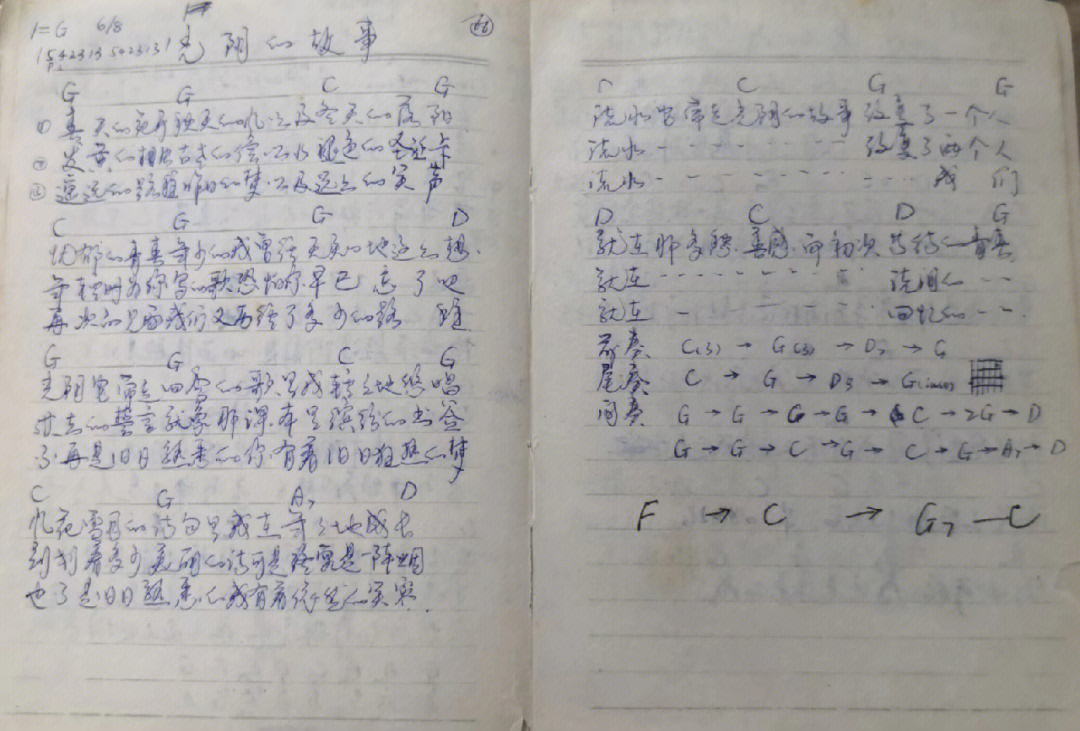 1=G 6/8
光阴的故事
G G C G
① 春天的花开秋天的风以及冬天的落阳
② 发黄的相片古老的信以及褪色的圣诞卡
③ 遥远的路程昨日的梦以及远去的笑声
C G G D
忧郁的青春年少的我曾经无知地这么想
年轻时为你写的歌恐怕你早已忘了吧
再次的见面我们又历经了多少的路程
G G C G
光阴它带走四季的歌里我轻轻地悠唱
过去的誓言就像那课本里缤纷的书签
不再是旧日熟悉的你有着旧日狂热的梦
C G A7 D
风花雪月的诗句里我在年年地成长
刻划着多少美丽的诗可是终究是一阵烟
也不是旧日熟悉的我有着依然的笑容
C G G
流水它带走光阴的故事改变了一个人
流水 - - - - - - - - 改变了两个人
流水 - - - - - - - - 我们
D C D G
就在那多愁善感而初次等待的青春
就在 - - - - - - - - 流泪的 - -
就在 - - - - - - 回忆的 - -
前奏 C(3) → G(3) → D7 → G
尾奏 C → G → D3 → G
间奏 G → G → G → G → C → 2G → D
G → G → C → G → C → G → A7 → D
F → C → G7 — C